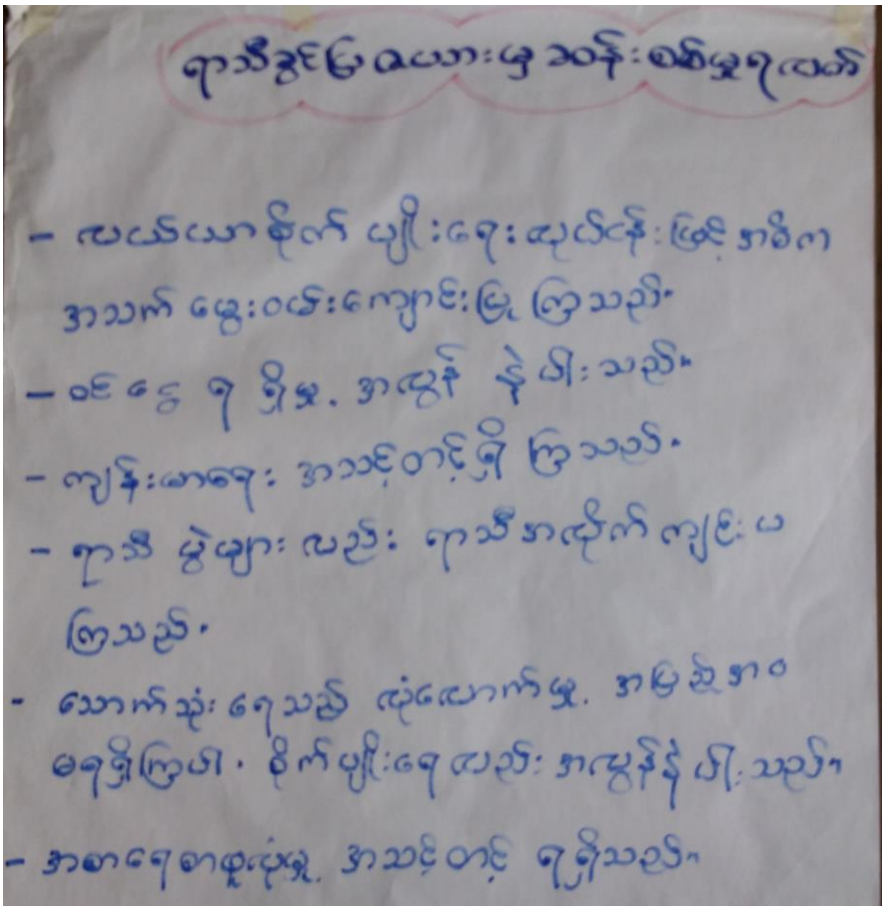 ရာသီခွင်ပြဇယားမှဆန်းစစ်မှုရလဒ်
- လယ်ယာစိုက်ပျိုးရေးလုပ်ငန်းဖြင့်အဓိက
အသက်မွေးဝမ်းကျောင်းပြုကြသည်။
- ဝင်ငွေရရှိမှု အလွန်နဲပါးသည်။
- ကျန်းမာရေး အသင့်တင့်ရှိကြသည်။
- ရာသီပွဲများလည်း ရာသီအလိုက်ကျင်းပ
ကြသည်။
- သောက်သုံးရေသည် လုံလောက်မှု အပြည့်အဝ
မရရှိကြပါ။ စိုက်ပျိုးရေလည်း အလွန်နဲပါးသည်။
- အစာရေစာဖူလုံမှု အသင့်တင့် ရရှိသည်။